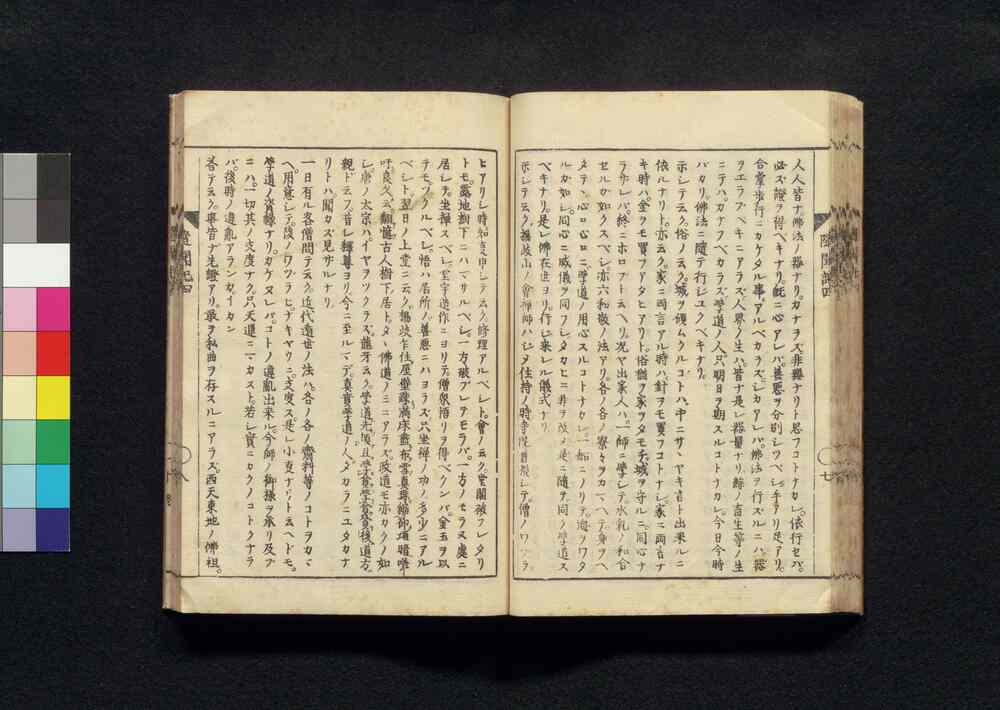 人人皆ナ佛法ノ器ナリ。カナラズ非器ナリト思フコトナカレ。依行セバ。
必ズ證ヲ得ベキナリ。既ニ心アレバ。善惡ヲ分別シツベシ。手アリ足アリ。
合掌歩行ニカケタル事アルベカラズ。シカアレバ佛法ヲ行ズルニハ。器
ヲエラブベキニアラズ。人界ノ生ハ皆ナ是レ器量ナリ。餘ノ畜生等ノ生
ニテハカナフベカラズ。學道ノ人。只明日ヲ期スルコトナカレ。今日今時
バカリ。佛法ニ隨テ行ジユクベキナリ。
示シテ云ク。俗ノ云ク。城ヲ傾ムクルコトハ。中ニサヽヤキ言ト出來ルニ
依ルナリト。亦云ク。家ニ両言アル時ハ。針ヲモ買フコトナシ。家ニ両言ナ
キ時ハ。金ヲモ買フアタヒアリト。俗猶ヲ家ヲタモチ。城ヲ守ルニ。同心ナ
ラザレバ。終ニホロブト云ヘリ。況ヤ出家人ハ。一師ニ學シテ。水乳ノ和合
セルガ如クスベシ。亦六和敬ノ法アリ。各ノ各ノ寮々ヲカマヘテ。身ヲヘ
ダテ。心ロ心ロニ學道ノ用心スルコトナカレ。一船ニノリテ。海ヲワタ
ルガ如シ。同心ニ威儀ヲ同フシ。タカヒニ非ヲ改メ。是ニ隨ヲ。同ク學道ス
ベキナリ。是レ佛在世ヨリ。行ジ來レル儀式ナリ。
示シテ云ク。楊岐山ノ會禪師ハジメ住持ノ時。寺院舊損シテ。僧ノワヅラ
ヒアリシ時。知事申シテ云ク。修理アルベシト。會ノ云ク。堂閣破ブレタリ
トモ。露地樹下ニハマサルベシ。一方破ブレテモラバ。一方ノモラヌ處ニ
居シテ。坐禪スベシ。堂宇造作ニヨリテ。僧衆悟リヲ得ベクンバ。金玉ヲ以
テモツクルベシ。悟ハ居所ノ善惡ニハヨラズ。只坐禪ノ功ノ多少ニアル
ベシト。翌日ノ上堂ニ云ク。楊岐乍住屋壁踈。滿床盡布雪眞珠。縮却項暗嗟
吁。良久云。翻憶古人樹下居ト。タヾ佛道ノミニアラズ。政道モ亦カクノ如
シ。唐ノ太宗ハイヤヲツクラズ。龍牙云ク。學道先須且學貧。學貧貧後道方
親ト云フ。昔シ釋尊ヨリ今ニ至ルマデ。眞實學道ノ人。タカラニユタカナ
リトハ聞カズ見ザルナリ。
一日有ル客僧問テ云ク。近代遁世ノ法ハ。各ノ各ノ齋料等ノコトヲカマ
ヘ。用意シテ。後ノワヅラヒナキヤウニ。支度ス。是レ小事ナリト云ヘドモ。
學道ノ資縁ナリ。カケヌレバ。コトノ違亂出來ル。今師ノ御樣ヲ承リ及ブ
ニハ。一切其ノ支度ナク。只天運ニマカスト。若シ實ニカクノコトクナラ
バ。後時ノ違亂アランカイカン
答テ云ク。事皆ナ先證アリ。敢ヲ私曲ヲ存スルニアラズ。西天東地ノ佛祖。
隨聞記四
七